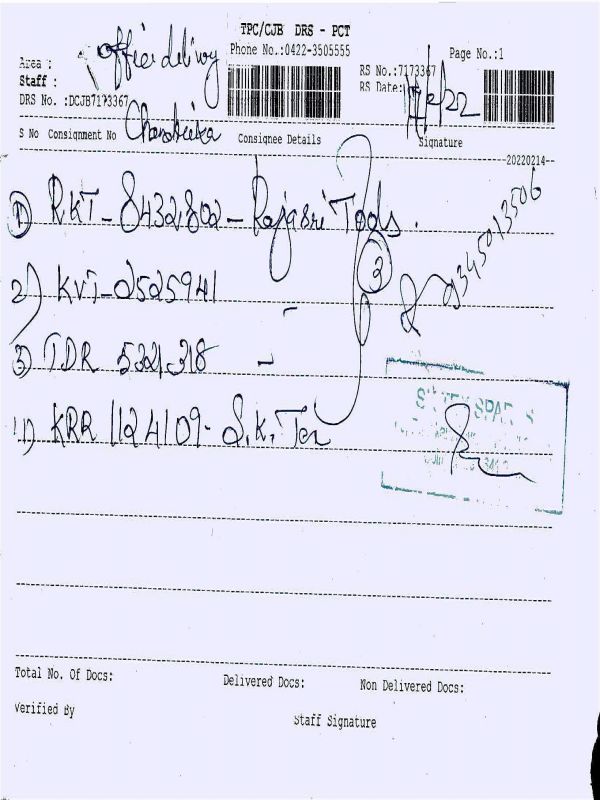 TPC/CJB DRS - PCT
Phone No.:0422-3505555
Page No.:1
Area : Office delivery
RS No.:7173367
Staff :
RS Date:
DRS No. :DCJB7173367
S No Consignment No
Consignee Details
Signature
20220214
1) RKT-8432802-Rajasri Tools.
3
9345013506
2) KVT-2525941 -
3) TDR 5321318 -
KRR 1124109- S.K. Tex
Total No. Of Docs:
Delivered Docs:
Non Delivered Docs:
Verified By
Staff Signature